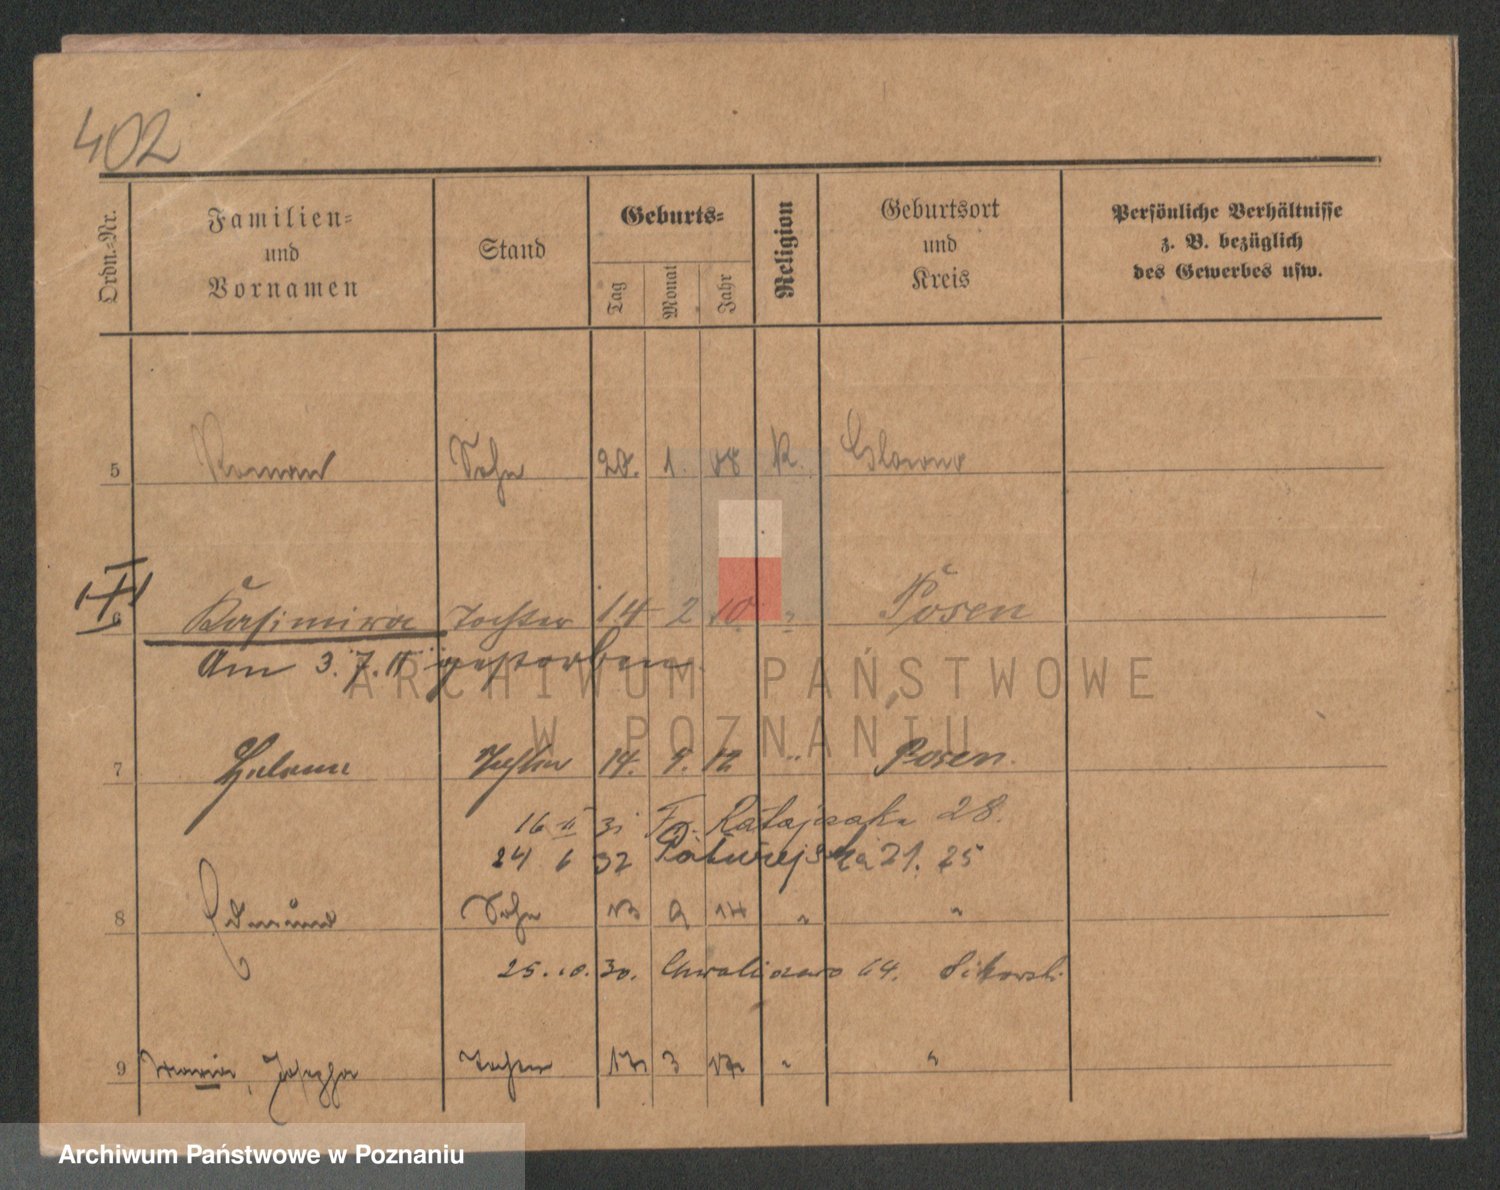 402
Ordn.-Nr.
Familien-
und
Vornamen
Stand
Geburts-
Tag
Monat
Jahr
Religion
Geburtsort
und
Kreis
Persönliche Verhältnisse
z. B. bezüglich
des Gewerbes usw.
5 Roman Sohn 28. 1. 08 K.
6 Kasimira Tochter 14 2 10 " Posen
Am 3. 7. 11 gestorben.
ARCHIWUM PAŃSTWOWE
W POZNANIU
7 Helene Tochter 14. 9. 12 " Posen.
16 31 Fr. Ratajczaka 28.
24 6 32 21. 25
8 Edmund Sohn 13 9 14 " "
25. 10. 30. 64. Sikorski
9 Maria, Josepha Tochter 17 3 "  "
Archiwum Państwowe w Poznaniu